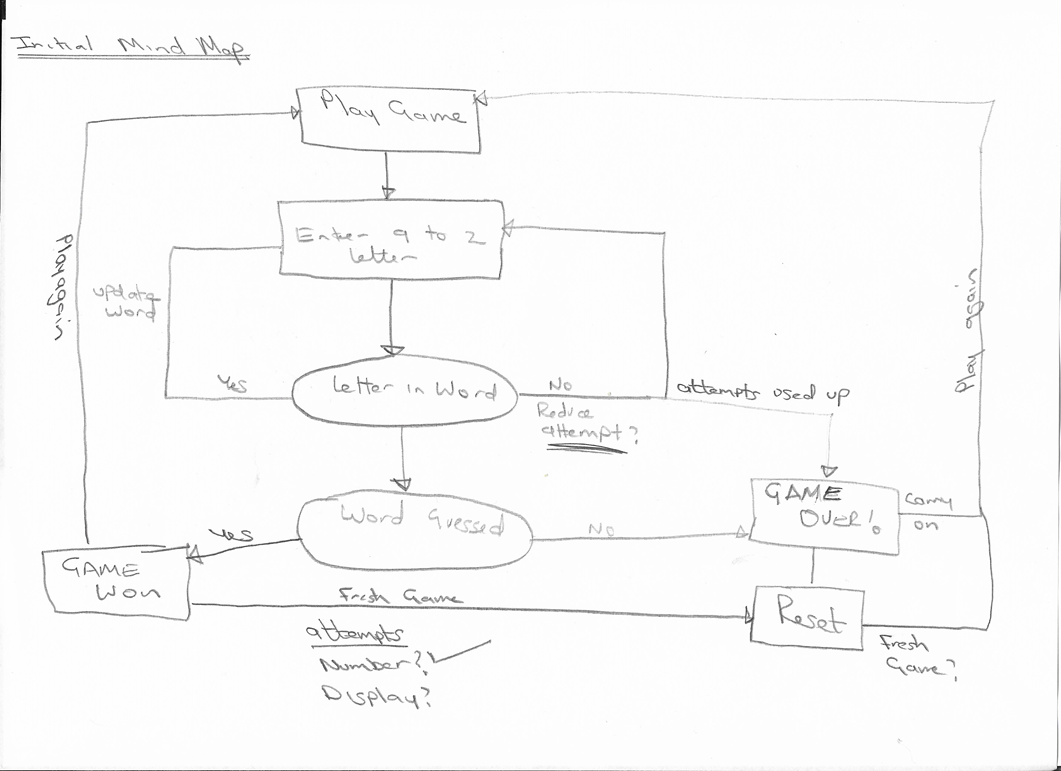 Initial Mind Map
Play Game
Enter a to z
letter
Play again
update
Word
Yes
Letter in Word
No
Reduce
attempt?
attempts used up
Play again
Word Guessed
Yes
No
GAME
OVER!
Carry
on
GAME
WON
Fresh Game
Reset
Fresh
Game?
attempts
Number?
Display?